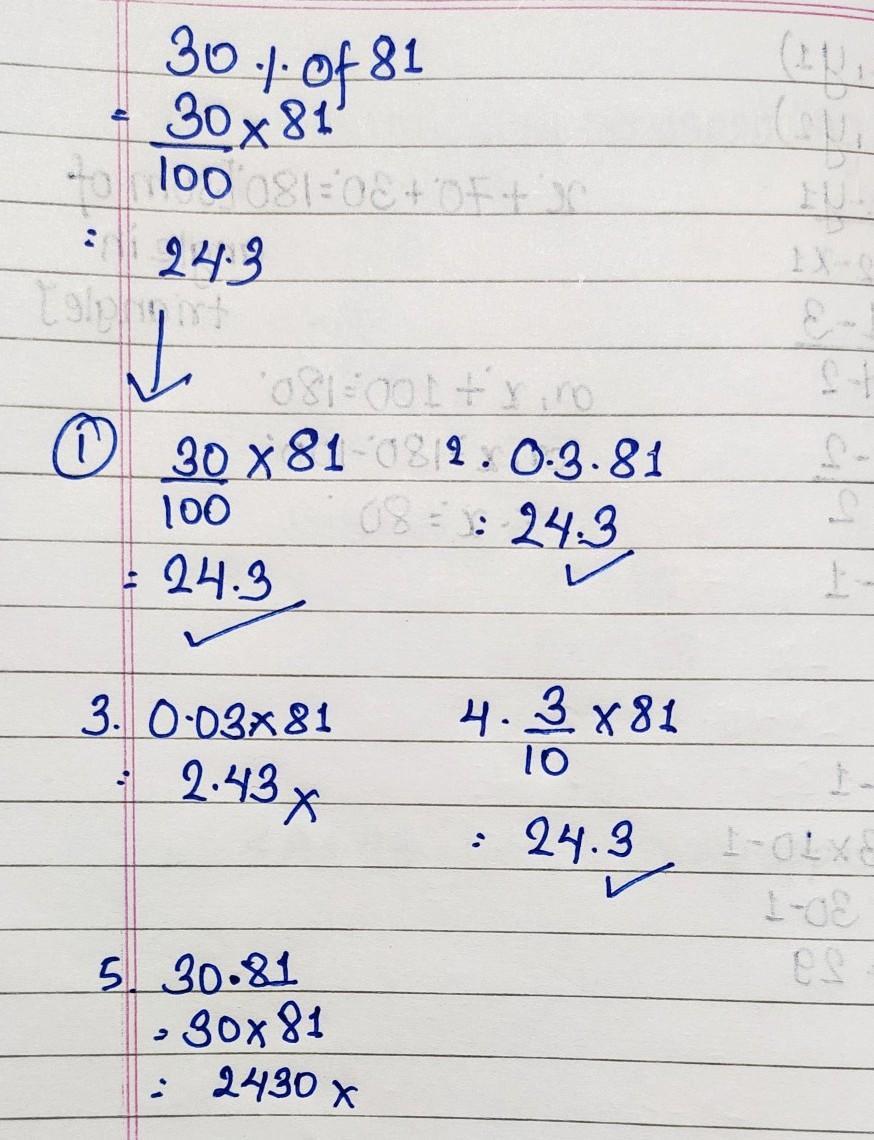 30 % of 81
= 30/100 × 81
= 24.3
↓
① 30/100 × 81
= 24.3 ✓
2. 0.3·81
= 24.3 ✓
3. 0.03×81
= 2.43 ×
4. 3/10 × 81
= 24.3 ✓
5. 30·81
= 30×81
= 2430 ×